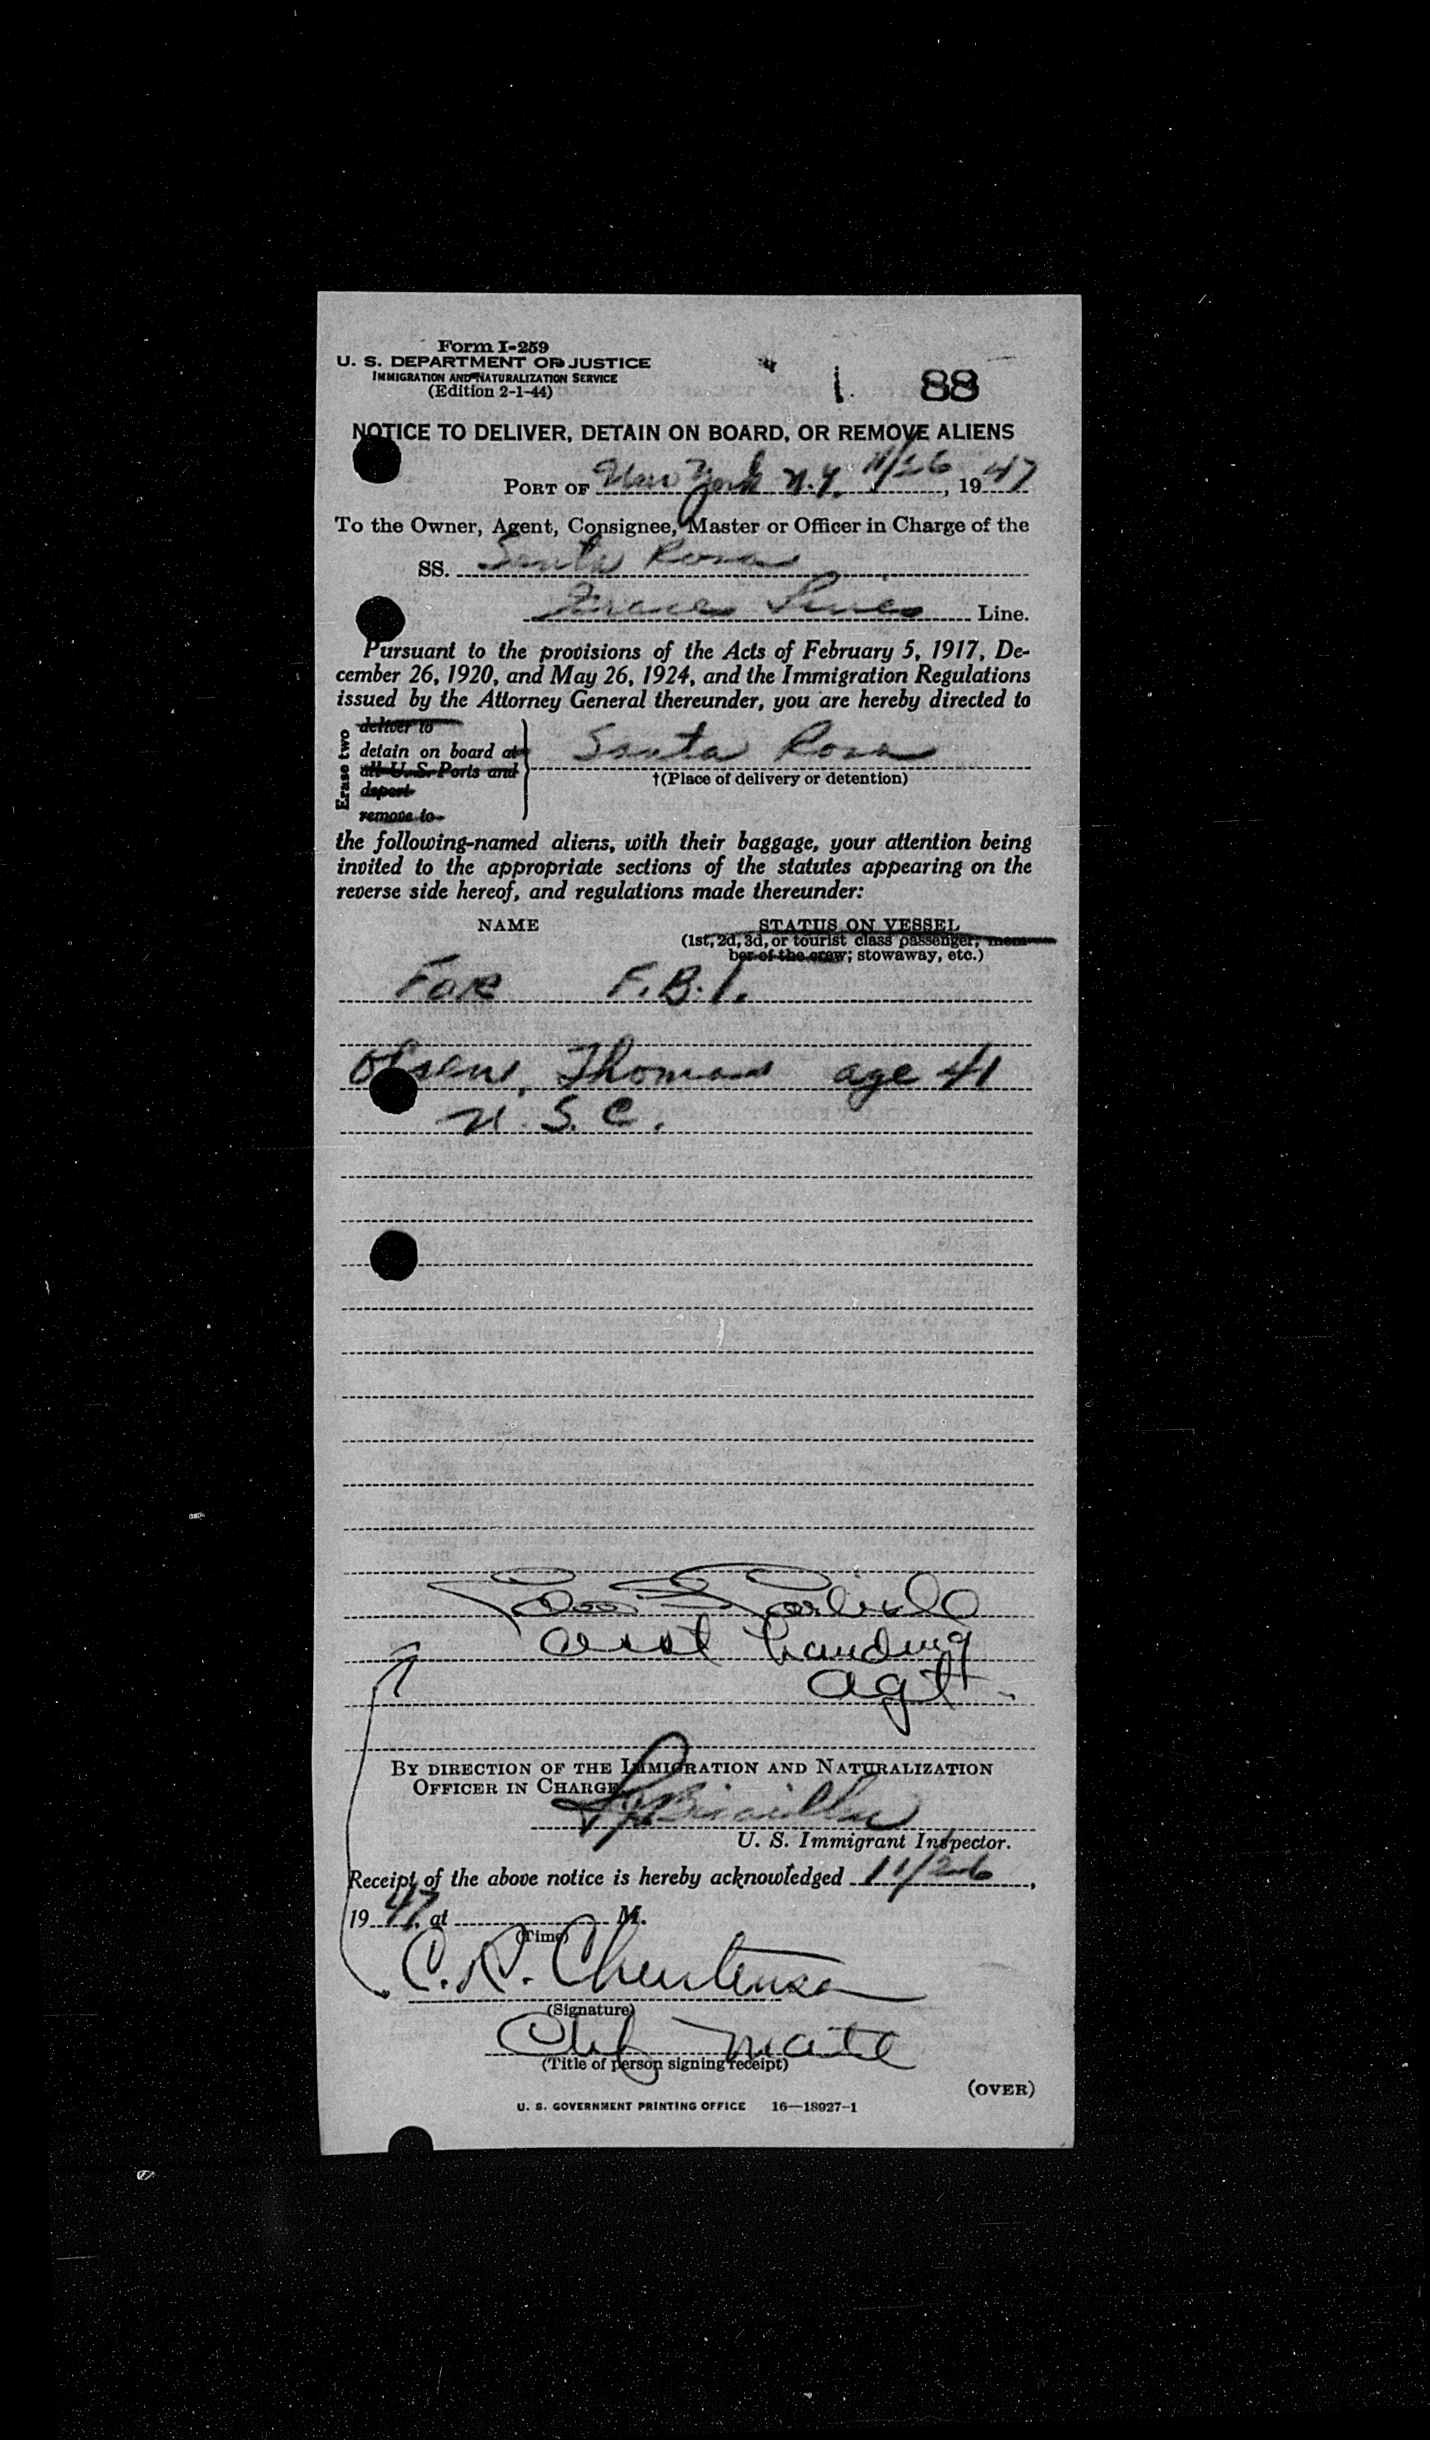 Form I-259
U. S. DEPARTMENT OF JUSTICE
IMMIGRATION AND NATURALIZATION SERVICE
(Edition 2-1-44)
1. 88
NOTICE TO DELIVER, DETAIN ON BOARD, OR REMOVE ALIENS
PORT OF New York N.Y. 11/26, 1947
To the Owner, Agent, Consignee, Master or Officer in Charge of the
SS. Santa Rosa
Grace Lines Line.
Pursuant to the provisions of the Acts of February 5, 1917, De-
cember 26, 1920, and May 26, 1924, and the Immigration Regulations
issued by the Attorney General thereunder, you are hereby directed to
Erase two
deliver to
detain on board at Santa Rosa
all U. S. Ports and
†(Place of delivery or detention)
deport
remove to
the following-named aliens, with their baggage, your attention being
invited to the appropriate sections of the statutes appearing on the
reverse side hereof, and regulations made thereunder:
NAME STATUS ON VESSEL
(1st, 2d, 3d, or tourist class passenger; mem-
ber of the crew; stowaway, etc.)
FOR F.B.I.
Olsen, Thomas age 41
U.S.C.
Carlisle
asst Landing
agt.
BY DIRECTION OF THE IMMIGRATION AND NATURALIZATION
OFFICER IN CHARGE
U. S. Immigrant Inspector.
Receipt of the above notice is hereby acknowledged 11/26,
1947, at M.
(Time)
C. R. Christensen
(Signature)
Chf Mate
(Title of person signing receipt)
(OVER)
U. S. GOVERNMENT PRINTING OFFICE 16—18927-1